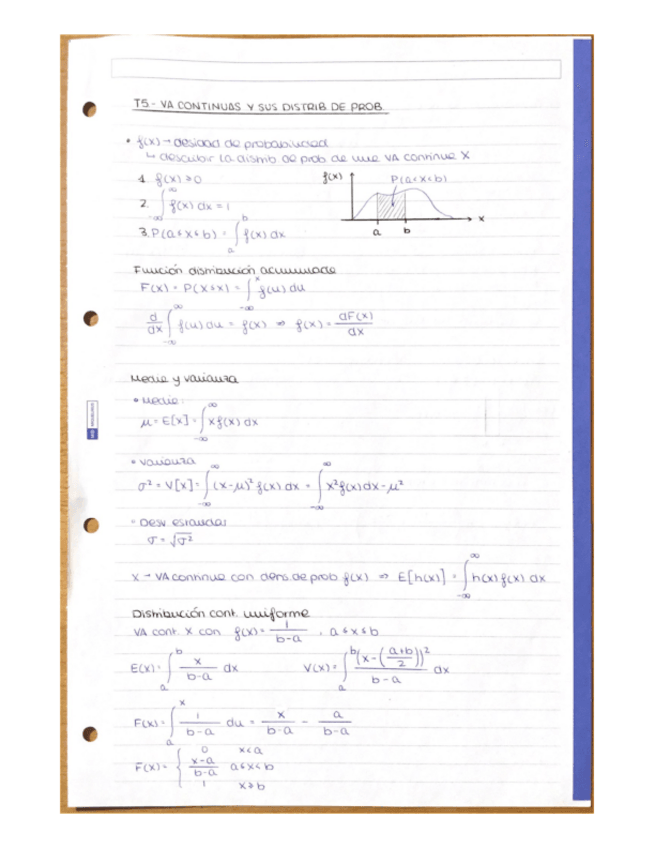 T5- VA CONTINUAS Y SUS DISTRIB DE PROB.
• f(x) → desidad de probabilidad
↳ describir la distrib de prob de una VA continua X
1. f(x) ≥ 0
2. ∫_{-∞}^{∞} f(x) dx = 1
3. P(a≤x≤b) = ∫_a^b f(x) dx
f(x)
P(a<x<b)
a b x
Función distribución acumulada
F(x) = P(X≤x) = ∫_{-∞}^{x} f(u) du
d/dx ∫_{-∞}^{∞} f(u) du = f(x) ⇒ f(x) = dF(x)/dx
Media y varianza
• Media:
μ = E[x] = ∫_{-∞}^{∞} x f(x) dx
• varianza
σ² = V[x] = ∫_{-∞}^{∞} (x-μ)² f(x) dx = ∫_{-∞}^{∞} x² f(x) dx - μ²
• Desv. estandar
σ = √σ²
X → VA continua con dens. de prob f(x) ⇒ E[h(x)] = ∫_{-∞}^{∞} h(x) f(x) dx
Distribución cont. uniforme
VA cont. X con f(x) = 1/(b-a) , a≤x≤b
E(x) = ∫_a^b x/(b-a) dx V(x) = ∫_a^b (x-((a+b)/2))²/(b-a) dx
F(x) = ∫_a^x 1/(b-a) du = x/(b-a) - a/(b-a)
F(x) = { 0 x<a
(x-a)/(b-a) a≤x<b
1 x≥b